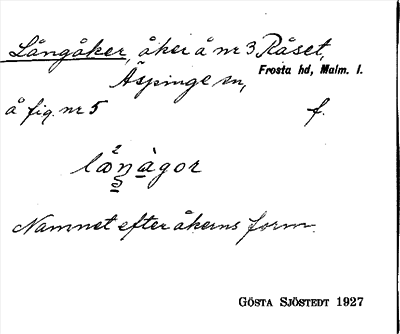 Långåker, åker å nr 3 Råset,
Frosta hd, Malm. l.
Äspinge sn,
å fig. nr 5 f.
Namnet efter åkerns form.
GÖSTA SJÖSTEDT 1927